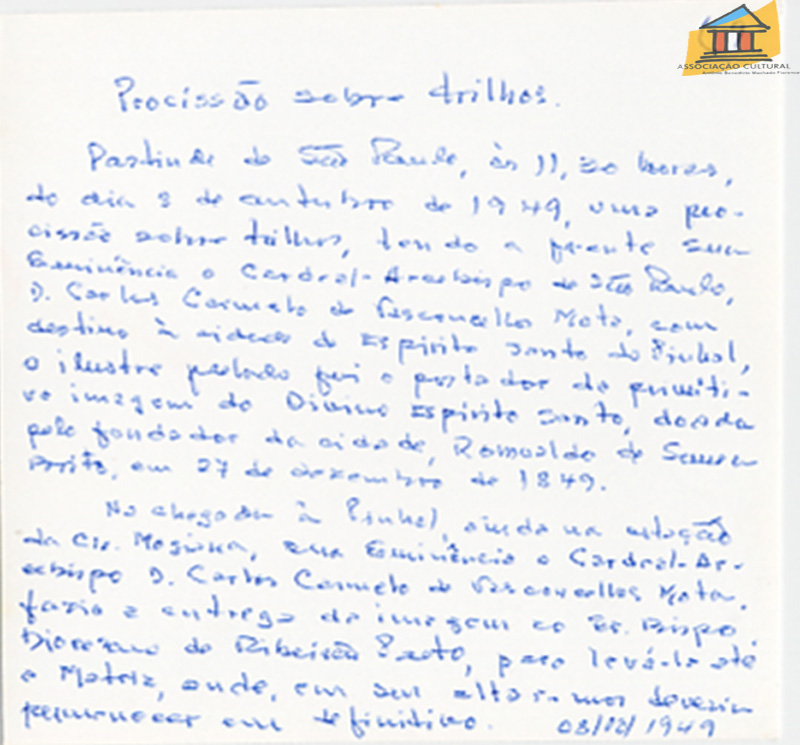 ASSOCIAÇÃO CULTURAL
Procissão sobre trilhos.
Partindo de São Paulo, às 11,30 horas,
do dia 8 de outubro de 1949, uma pro-
cissão sobre trilhos, tendo a frente sua
Eminência o Cardeal-Arcebispo de São Paulo,
D. Carlos Carmelo de Vasconcellos Mota, com
destino à cidade de Espirito Santo do Pinhal,
o ilustre prelado foi o portador da primiti-
va imagem do Divino Espirito Santo, doada
pelo fundador da cidade, Romualdo de Souza
Brito, em 27 de dezembro de 1849.
Na chegada à Pinhal, ainda na estação
da Cia. Mogiana, sua Eminência o Cardeal-Ar-
cebispo D. Carlos Carmelo de Vasconcellos Mota,
fazia a entrega da imagem ao Sr. Bispo
Diocesano de Ribeirão Preto, para levá-la até
a Matriz, onde, em seu altar-mor deveria
permanecer em definitivo. 1949